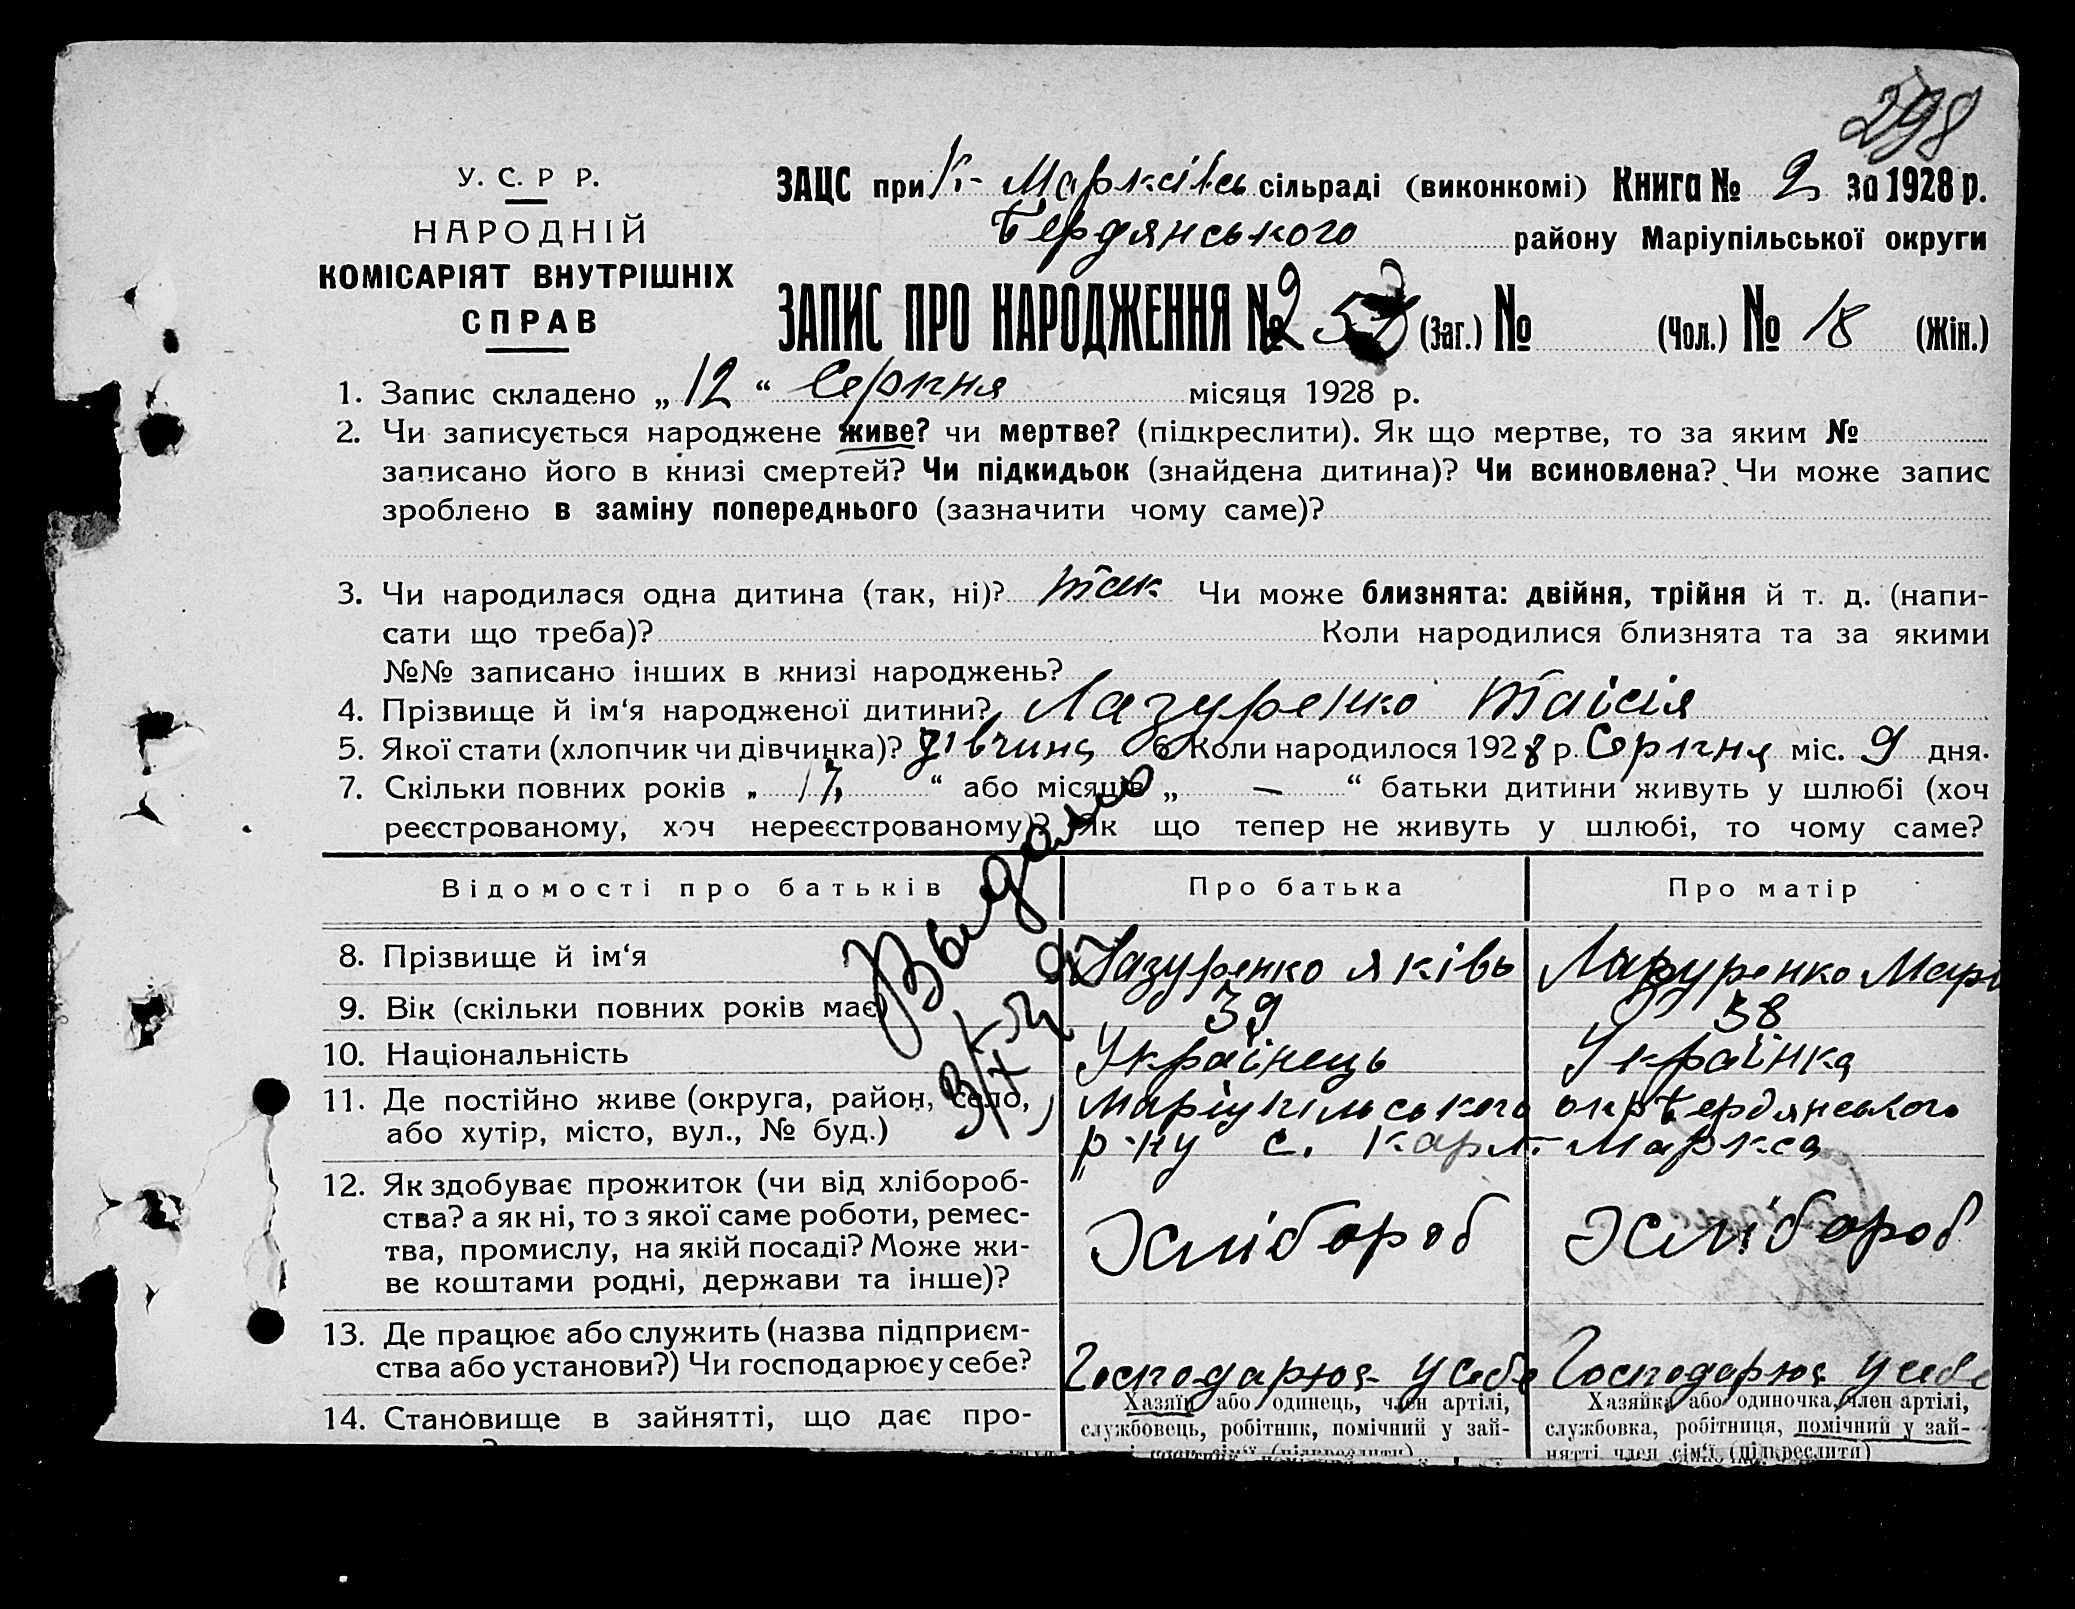 298
У. С. Р Р.
НАРОДНІЙ
КОМІСАРІЯТ ВНУТРІШНІХ
СПРАВ
ЗАЦС при К.- Марксівсь сільраді (виконкомі) Книга № 2 за 1928 р.
Бердянського району Маріупільської округи
ЗАПИС ПРО НАРОДЖЕННЯ № (Заг.) № (Чол.) № 18 (Жін.)
1. Запис складено „ 12 “ Серпня місяця 1928 р.
2. Чи записується народжене живе? чи мертве? (підкреслити). Як що мертве, то за яким №
записано його в книзі смертей? Чи підкидьок (знайдена дитина)? Чи всиновлена? Чи може запис
зроблено в заміну попереднього (зазначити чому саме)?
3. Чи народилася одна дитина (так, ні)? так Чи може близнята: двійня, трійня й т. д. (напи-
сати що треба)? Коли народилися близнята та за якими
№№ записано інших в книзі народжень?
4. Прізвище й ім‘я народженої дитини? Лазуренко Таісія
5. Якої стати (хлопчик чи дівчинка)? дівчина 6 Коли народилося 1928 р. Серпня міс. 9 дня.
7. Скільки повних років „ 17 “ або місяців „ — “ батьки дитини живуть у шлюбі (хоч
реєстрованому, хоч нереєстрованому)? Як що тепер не живуть у шлюбі, то чому саме?
Відомості про батьків Про батька Про матір
8. Прізвище й ім‘я Лазуренко Яківь Лазуренко Марі
9. Вік (скільки повних років має) 39 38
10. Національність Украінець Украінка
11. Де постійно живе (округа, район, село, Маріупільського окр Бердянського
або хутір, місто, вул., № буд.) р-ну с. Карл-Маркса
12. Як здобуває прожиток (чи від хлібороб-
ства? а як ні, то з якої саме роботи, ремес-
тва, промислу, на якій посаді? Може жи-
ве коштами родні, держави та інше)?
Хлібороб Хлібороб
13. Де працює або служить (назва підприєм-
ства або установи?) Чи господарює у себе?
Господарює у себе Господарює у себе
14. Становище в зайнятті, що дає про-
Хазяїн або одинець, член артілі,
службовець, робітник, помічний у зай-
Хазяйка або одиночка, член артілі,
службовка, робітниця, помічний у зай-
нятті член сім‘ї (підкреслити)
Выдано